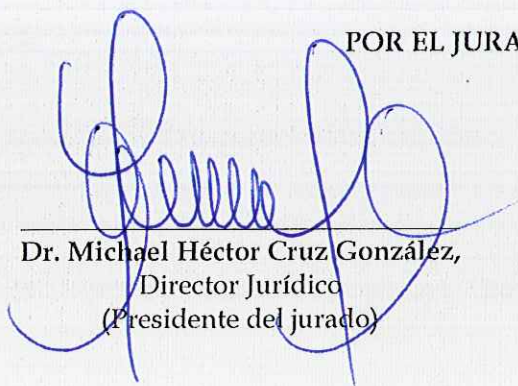 POR EL JURA
Dr. Michael Héctor Cruz González,
Director Jurídico
(Presidente del jurado)